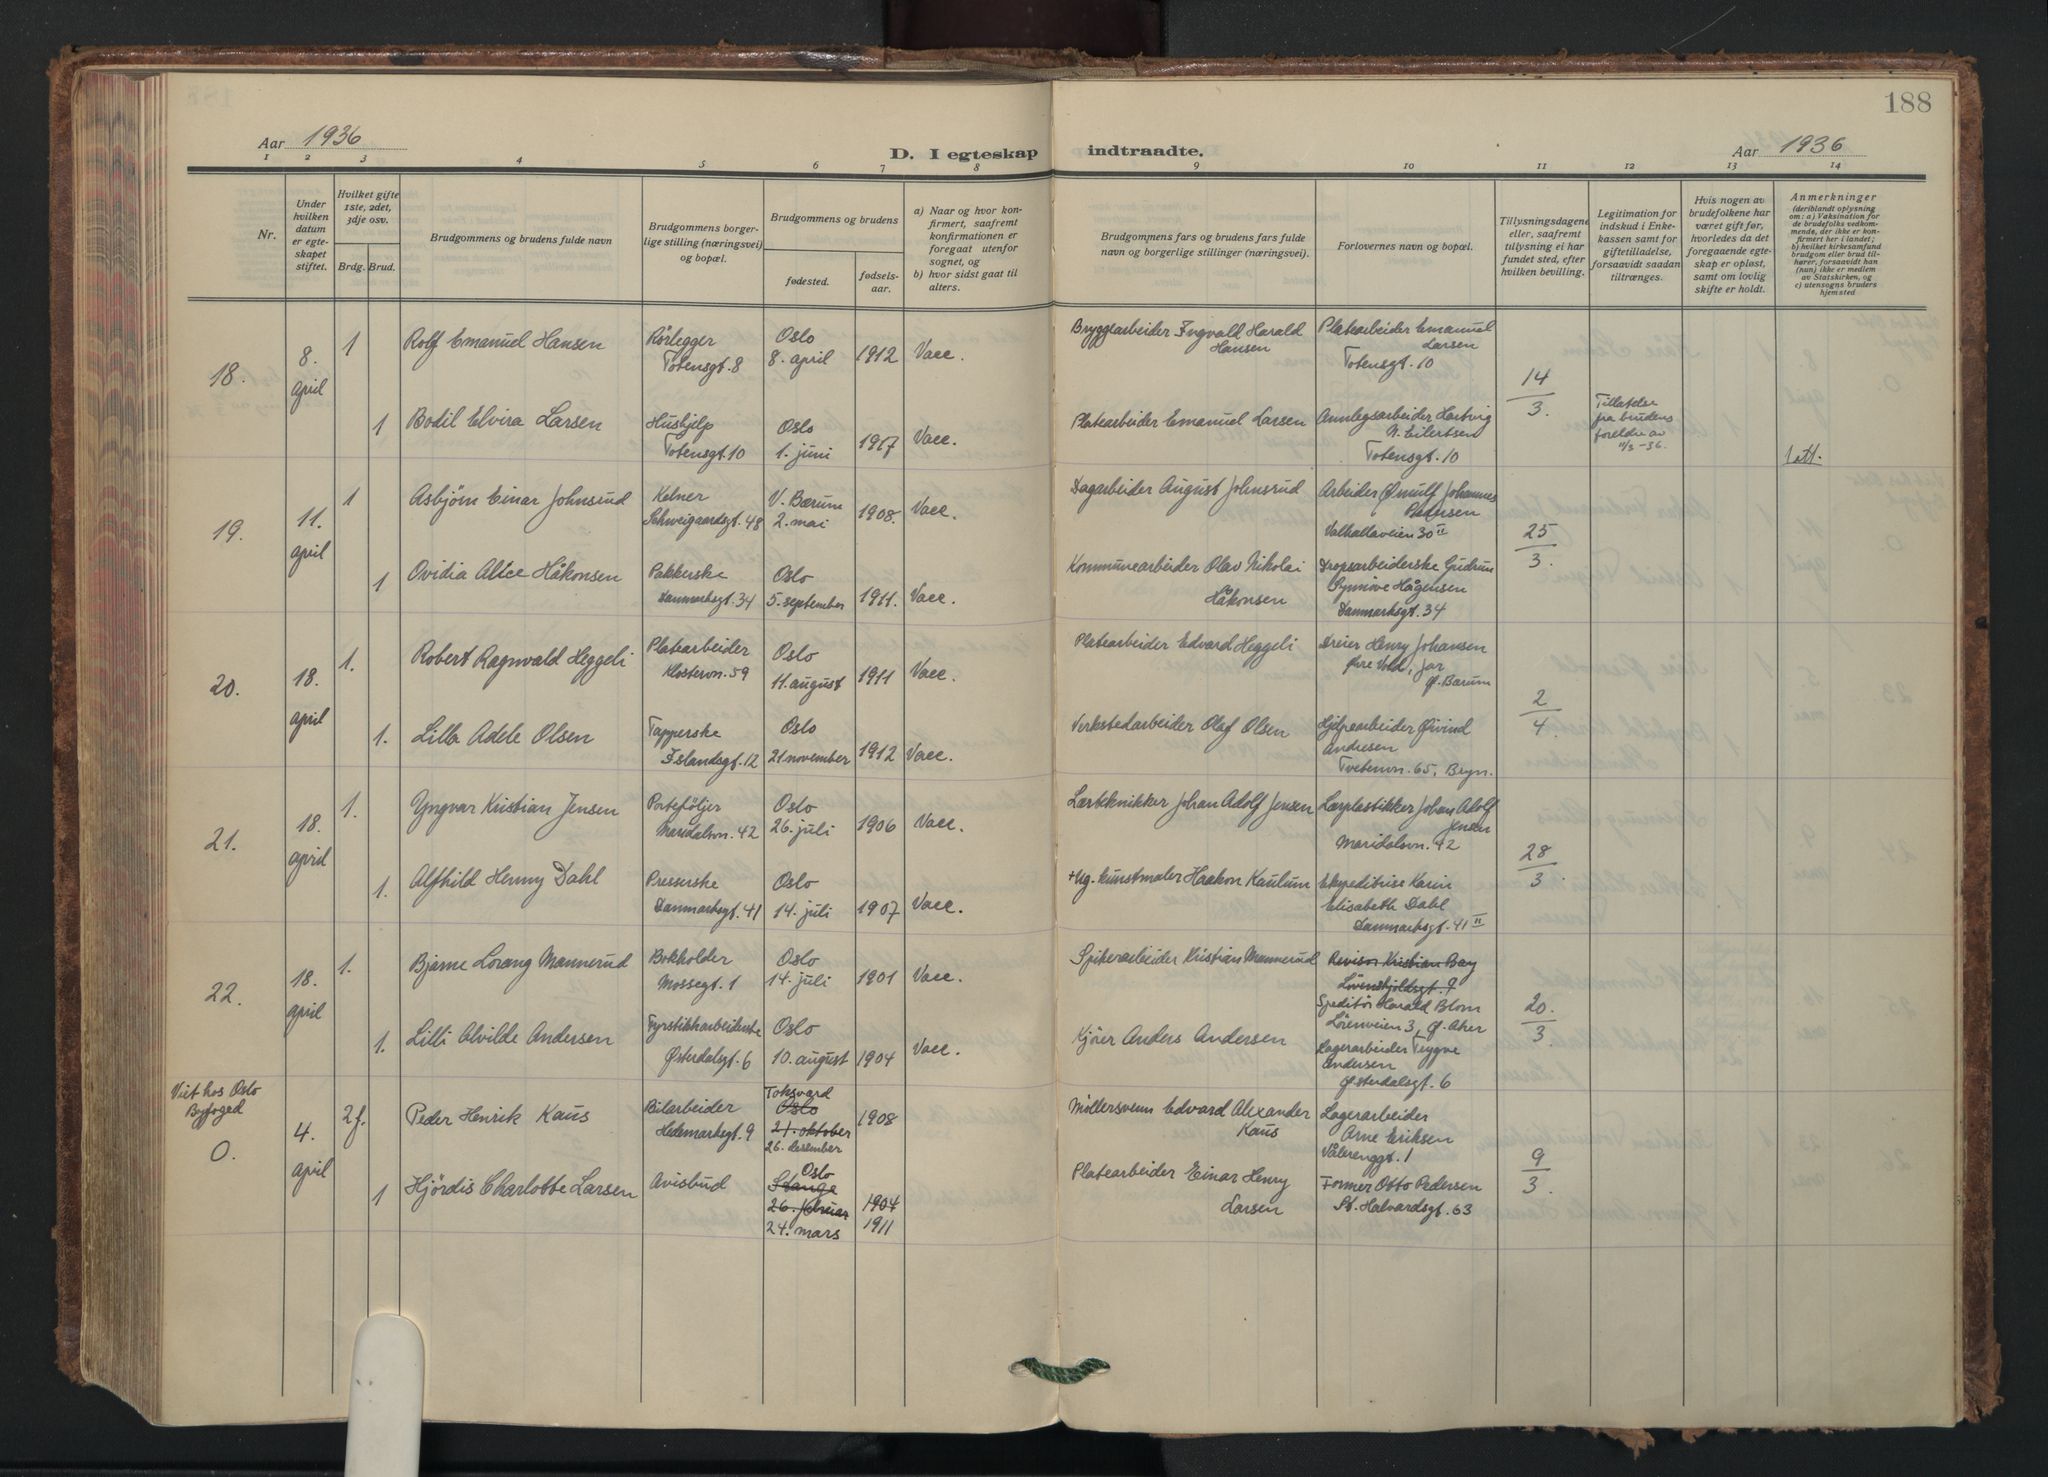 188
Aar 1936
D. I egteskap indtraadte.
Aar 1936
1 2 3 4 5 6 7 8 9 10 11 12 13 14
Nr.
Under hvilken datum er egteskapet stiftet.
Hvilket gifte 1ste, 2det, 3dje osv.
Brdg. Brud.
Brudgommens og brudens fulde navn
Brudgommens borgerlige stilling (næringsvei) og bopæl.
Brudgommens og brudens
fødested.
fødselsaar.
a) Naar og hvor konfirmert, saafremt konfirmationen er foregaat utenfor sognet, og
b) hvor sidst gaat til alters.
Brudgommens fars og brudens fars fulde navn og borgerlige stillinger (næringsvei).
Forlovernes navn og bopæl.
Tillysningsdagene eller, saafremt tillysning ei har fundet sted, efter hvilken bevilling.
Legitimation for indskud i Enkekassen samt for giftetilladelse, forsaavidt saadan tiltrænges.
Hvis nogen av brudefolkene har været gift før, hvorledes da det foregaaende egteskap er opløst, samt om lovlig skifte er holdt.
Anmerkninger
(deriblandt oplysning om: a) Vaksination for de brudefolks vedkommende, der ikke er konfirmert her i landet; b) hvilket kirkesamfund brudgom eller brud tilhører, forsaavidt han (hun) ikke er medlem av Statskirken, og c) utensogns bruders hjemsted
18. 8. april 1 Rolf Emanuel Hansen Rørlegger Totensgt. 8 Oslo 8. april 1912 Vacc. Bryggearbeider Ingvald Harald Hansen Platearbeider Emanuel Larsen Totensgt. 10 14/3.
1 Bodil Elvira Larsen Hushjelp Totensgt. 10 Oslo 1. juni 1917 Vacc. Platearbeider Emanuel Larsen Annlegsarbeider Hartvig N. Eilertsen Totensgt. 10 Tillatelse fra brudens foreldre av 11/3-36. 1 att.
19. 11. april 1 Asbjørn Einar Johnsrud Kelner Schweigaardsgt. 48 V. Bærum 2. mai 1908. Vacc. Dagarbeider August Johnsrud Arbeider Ørnulf Johannes Petersen Valhallaveien 30 II 25/3.
1 Ovidia Alice Håkonsen Pakkerske Danmarksgt. 34 Oslo 5. september 1911. Vacc. Kommunearbeider Olav Nikolai Håkonsen Dropsarbeiderske Gudrun Synnøve Hågensen Danmarksgt. 34
20. 18. april 1. Robert Ragnvald Heggeli Platearbeider Klostervn. 59 Oslo 11. august 1911 Vacc. Platearbeider Edvard Heggeli Dreier Henry Johansen Øvre Vold, Jar Ø. Bærum 2/4
1. Lilla Adele Olsen Tapperske Islandsgt. 12 Oslo 21 november 1912 Vacc. Verkstedarbeider Olaf Olsen Hjelpearbeider Øivind Andresen Tvetenvn. 65, Bryn.
21. 18. april 1. Yngvar Kristian Jensen Porteføljer Maridalsvn. 42 Oslo 26. juli 1906 Vacc. Lærteknikker Johan Adolf Jensen Lærplastikker Johan Adolf Jensen Maridalsvn. 42 28/3
1. Alfhild Henny Dahl Presserske Danmarksgt. 41 Oslo 14. juli 1907 Vacc. +Ug. kunstmaler Haakon Kaulum Ekspeditrise Karin Elisabeth Dahl Danmarksgt. 41 II
22. 18. april 1. Bjarne Lorang Mannerud Bokholder Mossegt. 1 Oslo 14. juli 1901 Vacc. Spikerarbeider Kristian Mannerud Revisor Kristian Bay Løvenskjoldsgt. 9 Speditør Harald Blom Lørenveien 3, Ø. Aker 20./3
1. Lilli Alvilde Andersen Fyrstikkarbeiderske Østerdalsgt. 6 Oslo 10. august 1904 Vacc. Kjører Anders Andersen Lagerarbeider Trygve Andersen Østerdalsgt. 6
Viet hos Oslo Byfoged
0. 4. april 2 f. Peder Henrik Kaus Bilarbeider Hedemarksgt. 9 Toksvard Oslo 21. oktober 26. desember 1908 Møllersvenn Edvard Alexander Kaus Lagerarbeider Arne Eriksen Vålerenggt. 1 9/3.
1 Hjørdis Charlotte Larsen Avisbud Oslo Stange 26. februar 1904 24. mars 1911 Platearbeider Einar Henry Larsen Former Otto Pedersen St. Halvardsgt. 63